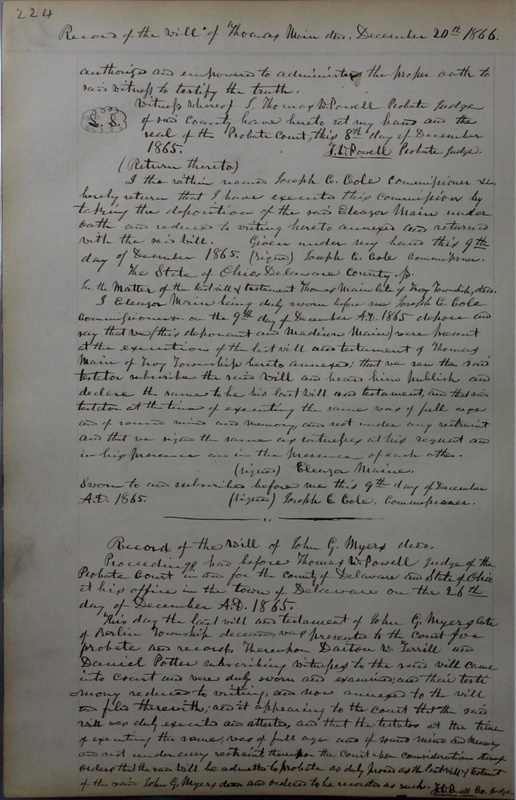 224
Record of the Will of Thomas Main decd. December 20th 1866.
authorize and empowered to administer the proper oath to
said witness to testify the truth.
Witness whereof I, Thomas W. Powell Probate Judge
of said County have hereto set my hand and the
L. S.
seal of the Probate Court, this 8th day of December
1865. T. W. Powell Probate Judge.
(Return thereto)
I the within named Joseph C. Cole Commissioner &c
hereby return that I have executed this commission by
taking the deposition of the said Eleazor Main under
oath and reduced to writing hereto annexed and returned
with the said will. Given under my hand this 9th
day of December 1865. (signed) Joseph C. Cole Commissioner.
The State of Ohio, Delaware County, ss.
In the Matter of the last will & testament Thomas Main late of Troy Township, decd.
I Eleazor Main being duly sworn before me Joseph C. Cole
Commissioner on the 9th day of December A.D. 1865 depose and
say that we (this deponent and Madison Main) were present
at the execution of the last will and testament of Thomas
Main of Troy Township hereto annexed; that we saw the said
testator subscribe the said will and heard him publish and
declare the same to be his last will and testament, and that said
testator at the time of executing the same was of full age
and of sound mind and memory and not under any restraint
and that we signed the same as witnesses at his request and
in his presence and in the presence of each other.
(signed) Eleazor Maine.
Sworn to and subscribed before me this 9th day of December
A.D. 1865. (signed) Joseph C. Cole, Commissioner.
Record of the Will of John G. Myers decd.
Proceedings had before Thomas W. Powell Judge of the
Probate Court in and for the county of Delaware and State of Ohio
at his office in the town of Delaware on the 26th
day of December A.D. 1865.
This day the last will and testament of John G. Myers late
of Berlin Township deceased, was presented to the court for
probate and record. Thereupon Darton W. Terrill and
Daniel Potter subscribing witnesses to the said will came
into Court and were duly sworn and examined; and their testi
mony reduced to writing, and now annexed to the will
and filed therewith; and it appearing to the Court that the said
will was duly executed and attested, and that the testator at the time
of executing the same, was of full age and of sound mind and memory
and not under any restraint thereupon the Court upon consideration thereof
orders that the said will be admitted to probate as duly proved as the last will & testament
of the said John G. Myers decd and ordered to be recorded as such. T. W. Powell Pro. Judge